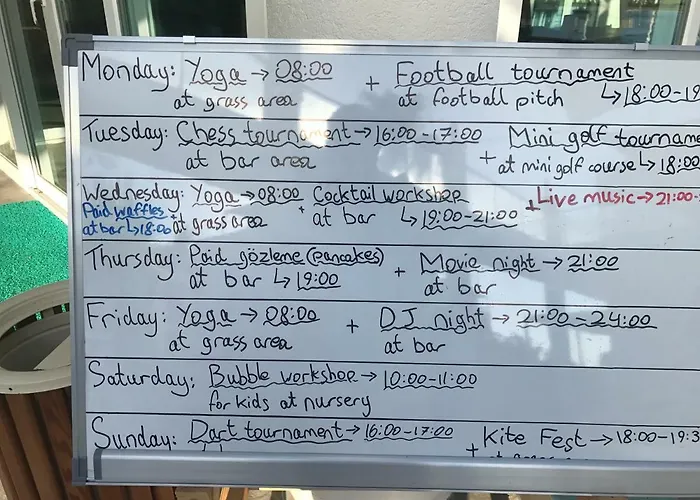 Monday: Yoga → 08:00 + Football tournament
at grass area at football pitch ↳ 18:00-19
Tuesday: Chess tournament → 16:00-17:00 Mini golf tourname
at bar area + at mini golf course ↳ 18:00
Wednesday: Yoga → 08:00 + Cocktail workshop + Live music → 21:00-
Paid waffles + at grass area at bar ↳ 19:00-21:00
at bar ↳ 18:00
Thursday: Paid gözleme (pancakes) + Movie night → 21:00
at bar ↳ 19:00 at bar
Friday: Yoga → 08:00 + DJ night → 21:00-24:00
at grass area at bar
Saturday: Bubble workshop → 10:00-11:00
for kids at nursery
Sunday: Dart tournament → 16:00-17:00 + Kite Fest → 18:00-19:3